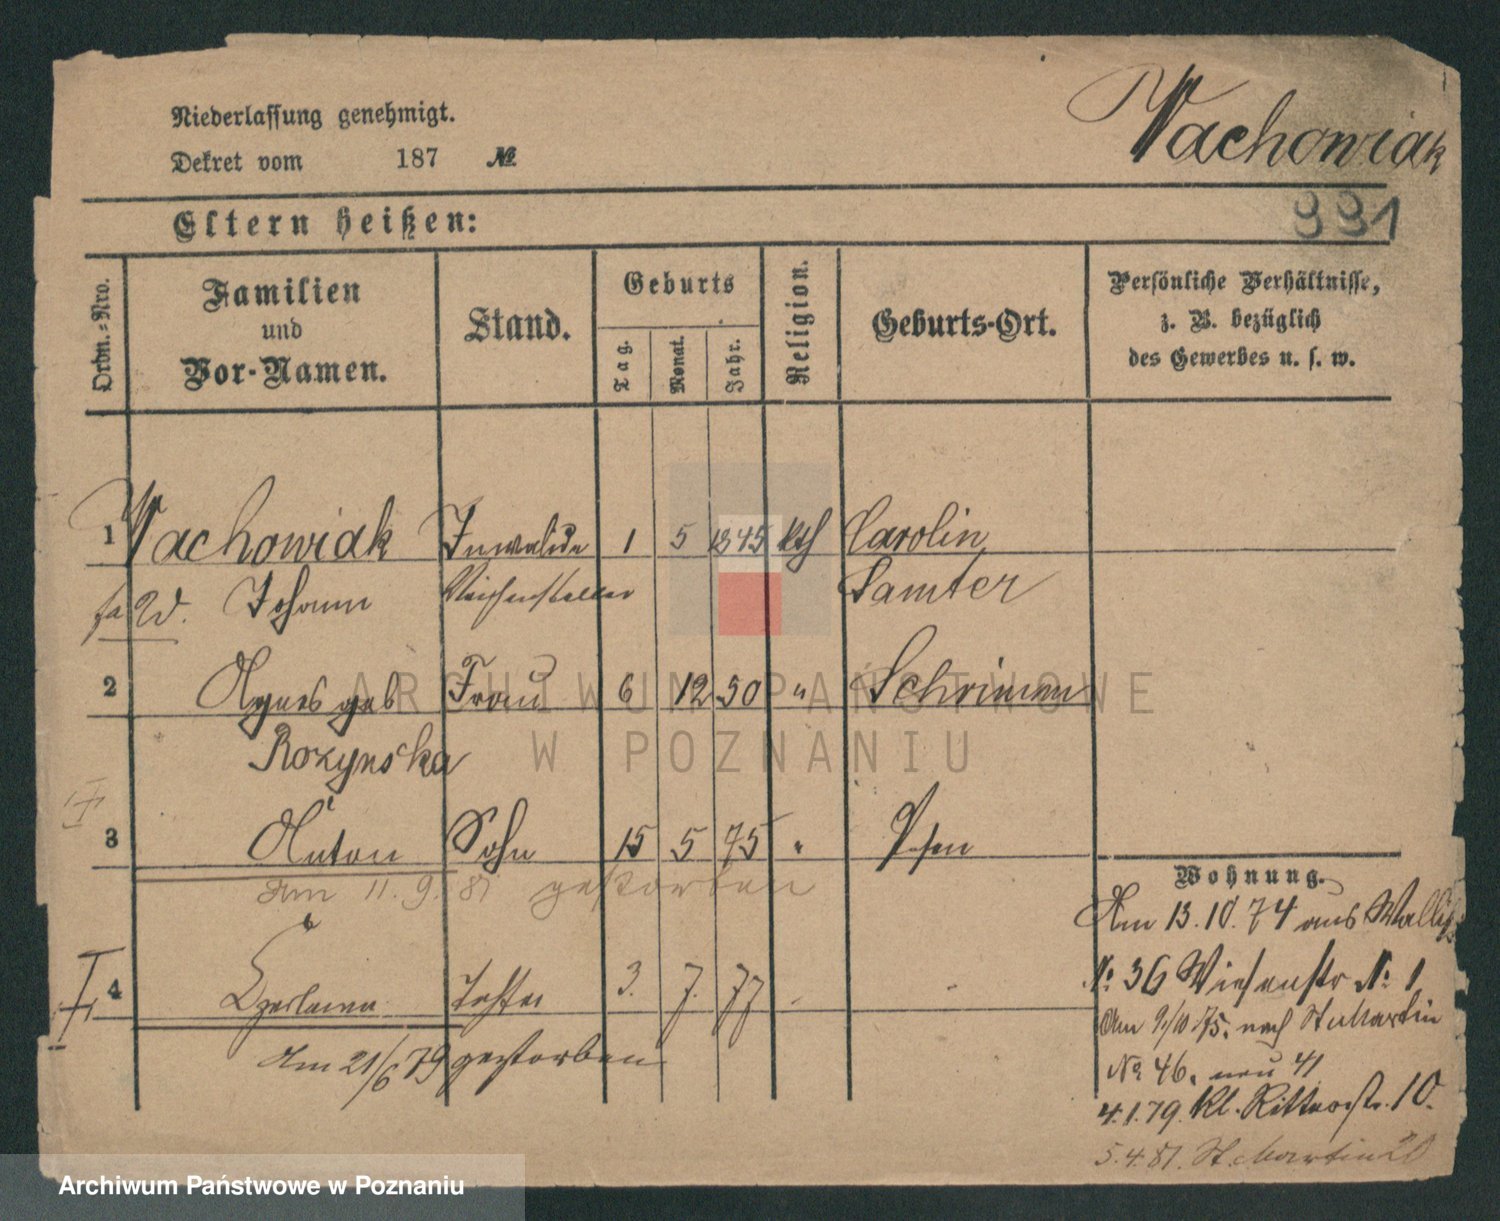 Niederlassung genehmigt.
Dekret vom 187 №
Wachowiak
991
Eltern heißen:
Ordn.-Nro.
Familien
und
Vor-Namen.
Stand.
Geburts
Tag.
Monat.
Jahr.
Religion.
Geburts-Ort.
Persönliche Verhältnisse,
z. B. bezüglich
des Gewerbes u. s. w.
1 Wachowiak Invalide 1 5 1845 kth Carolin
Johann Weichensteller Samter
2 Agnes geb Frau 6 12 50 " Schrimm
Rozynska
3 Anton Sohn 15 5 75 " Posen
am 11. 9. 81 gestorben
4 Tochter 3. 7. 77
Am 21/6 79 gestorben
Wohnung.
Am 13. 10. 74 aus
№ 36 Wiesenstr № 1
Am 9/10 75. nach St Martin
№ 46. neu 41
4. 1. 79. kl. Ritterstr. 10.
5. 4. 81. St. Martin 20
ARCHIWUM PAŃSTWOWE
W POZNANIU
Archiwum Państwowe w Poznaniu